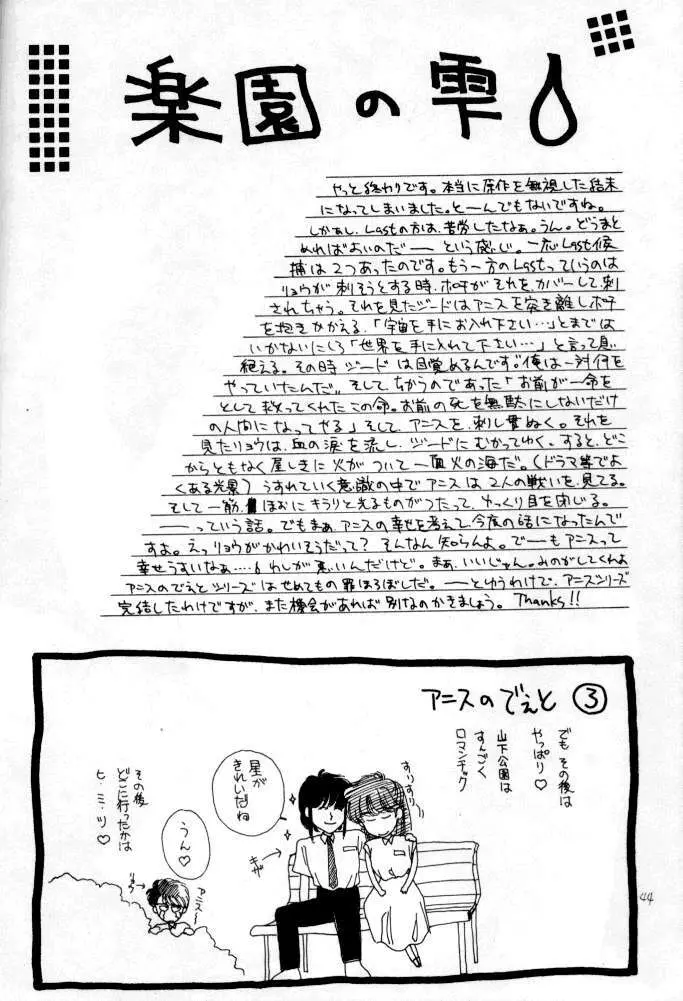 楽園の雫
やっと終わりです。本当に原作を無視した結末
になってしまいました。と一んでもないですね。
しかあし、Lastの方は、苦労したなぁ。うん。どうまと
めればよいのだ── という感じ。一応Last候
補は2つあったのです。もう一方のLastっていうのは
リョウが刺そうとする時、ポチがそれを、カバーして、刺
されちゃう。それを見たジードはアニスを突き離しポチ
を抱きかかえる、「宇宙を手にお入れ下さい…」とまでは
いかないにしろ「世界を手に入れて下さい…」と言って息
絶える。その時 ジードは目覚めるんです。“俺は一対何を
やっていたんだ〟そして、ちかうのであった「お前が一命を
として救ってくれたこの命。お前の死を無駄にしないだけ
の人間になってやる」そして、アニスを、刺し貫ぬく。それを
見たリョウは、血の涙を流し、ジードにむかってゆく。すると、どこ
からともなく屋しきに火がついて一面火の海だ。(ドラマ等でよ
くある光景) うすれていく意識の中でアニスは2人の戦いを見てる。
そして一筋、ほおにキラリと光るものがつたって、ゆっくり目を閉じる。
──っていう話。でもまぁ、アニスの幸せを考えて今度の話になったんで
すよ。えっリョウがかわいそうだって？そんなん知らんよ。で一もアニスって
幸せうすいなぁ……わしが悪いんだけど。まぁ、いいじゃん。みのがしてくれよ
アニスのでえとシリーズはせめてもの罪ほろぼしだ。──とゆうわけで、アニスシリーズ
完結したわけですが、また機会があれば別なのかきましょう。Thanks!!
アニスのでぇと ③
でも その後は
やっぱり♡
山下公園は
すんごく
ロマンチック
すりすり
星が
きれいだね
キザ
うん♡
アニス〜
りょう
その後
どこに行ったかは
ヒ・ミ・ツ♡
44